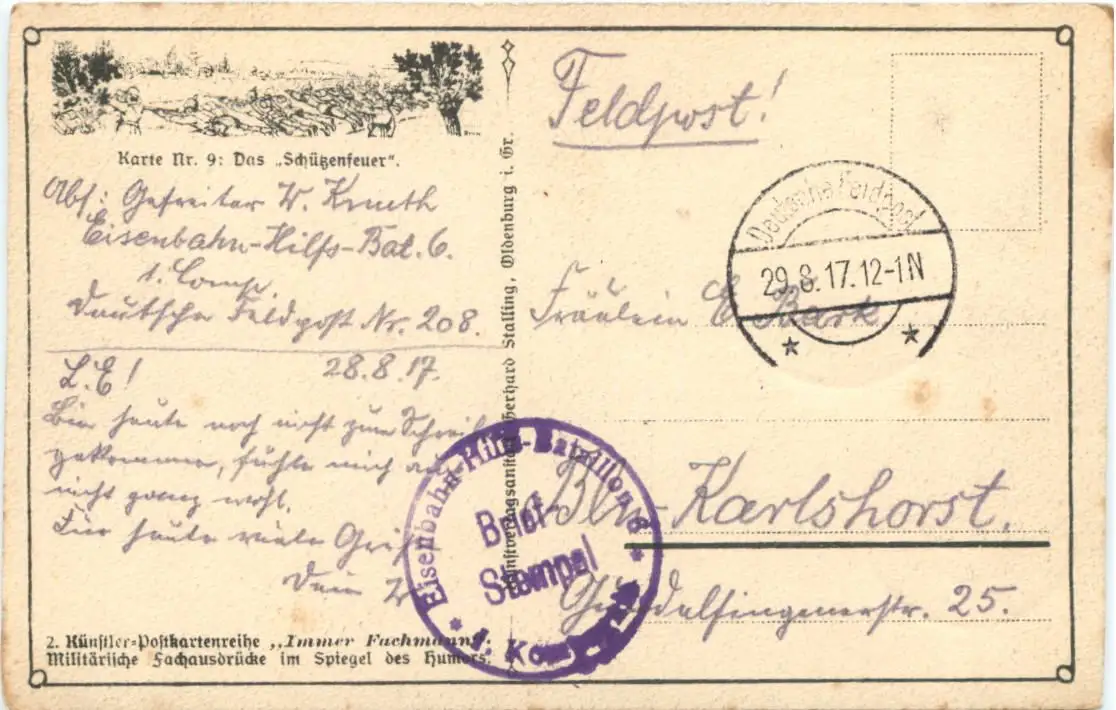 Karte Nr. 9: Das „Schützenfeuer“.
Abs: Gefreiter W.
Eisenbahn-Hilfs-Bat. 6.
1. Comp.
Deutsche Feldpost Nr. 208.
L. E! 28.8.17.
Bin heute noch nicht zum
gekommen, fühle mich auch
nicht ganz wohl.
Für heute viele Grüße
Dein W
2. Künstler-Postkartenreihe „Immer Fachmann“:
Militärische Fachausdrücke im Spiegel des Humors.
Kunstverlagsanstalt Gerhard Stalling, Oldenburg i. Gr.
Feldpost!
Deutsche Feldpost
29.8.17.12-1N
Fräulein E. Bark
Bln-Karlshorst.
Gundelfingenerstr. 25.
Eisenbahn-Hilfs-Bataillon 6
Brief-
Stempel
1. Komp.